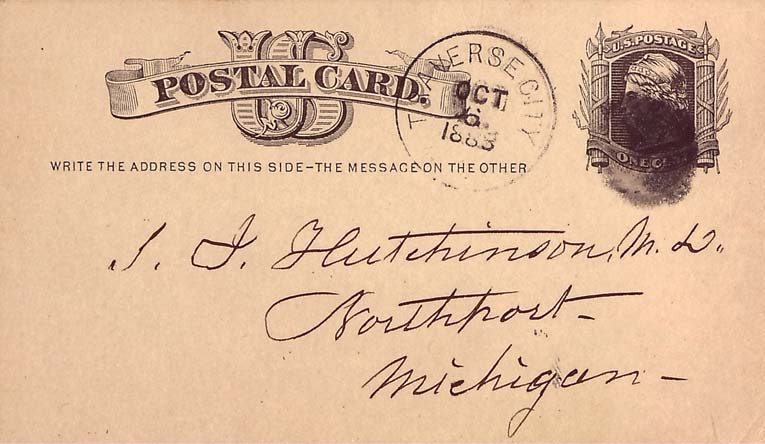 US
POSTAL CARD.
TRAVERSE CITY
OCT
6.
1883
U.S. POSTAGE
ONE C
WRITE THE ADDRESS ON THIS SIDE–THE MESSAGE ON THE OTHER
S. J. Hutchinson, M. D.
Northport–
Michigan–